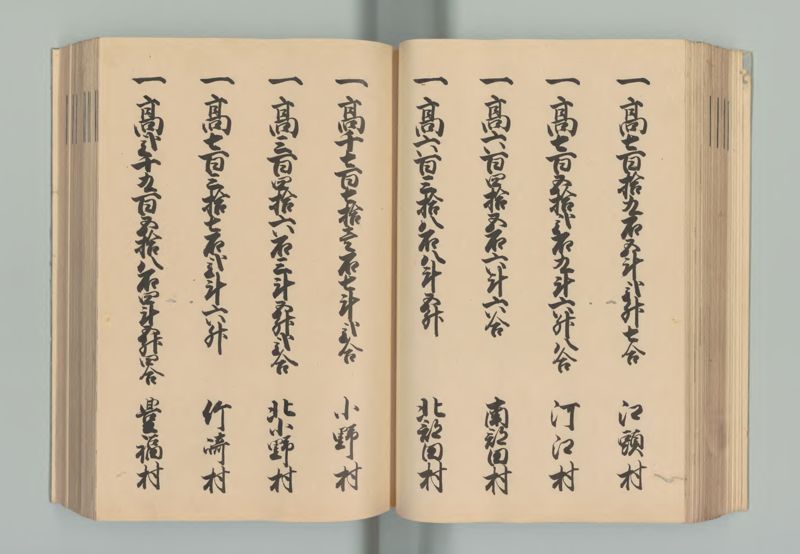 一高七百拾九石五斗弐升七合 江頭村
一高七百五拾弐石九斗六升八合 河江村
一高六百四拾五石六斗六合 南部田村
一高六百三拾八石八斗五升 北部田村
一高千七百七拾壱石七斗弐合 小野村
一高三百四拾六石三斗五升弐合 北小野村
一高七百三拾七石弐斗六升 竹崎村
一高弐千九百五拾八石四斗五升四合 豊福村